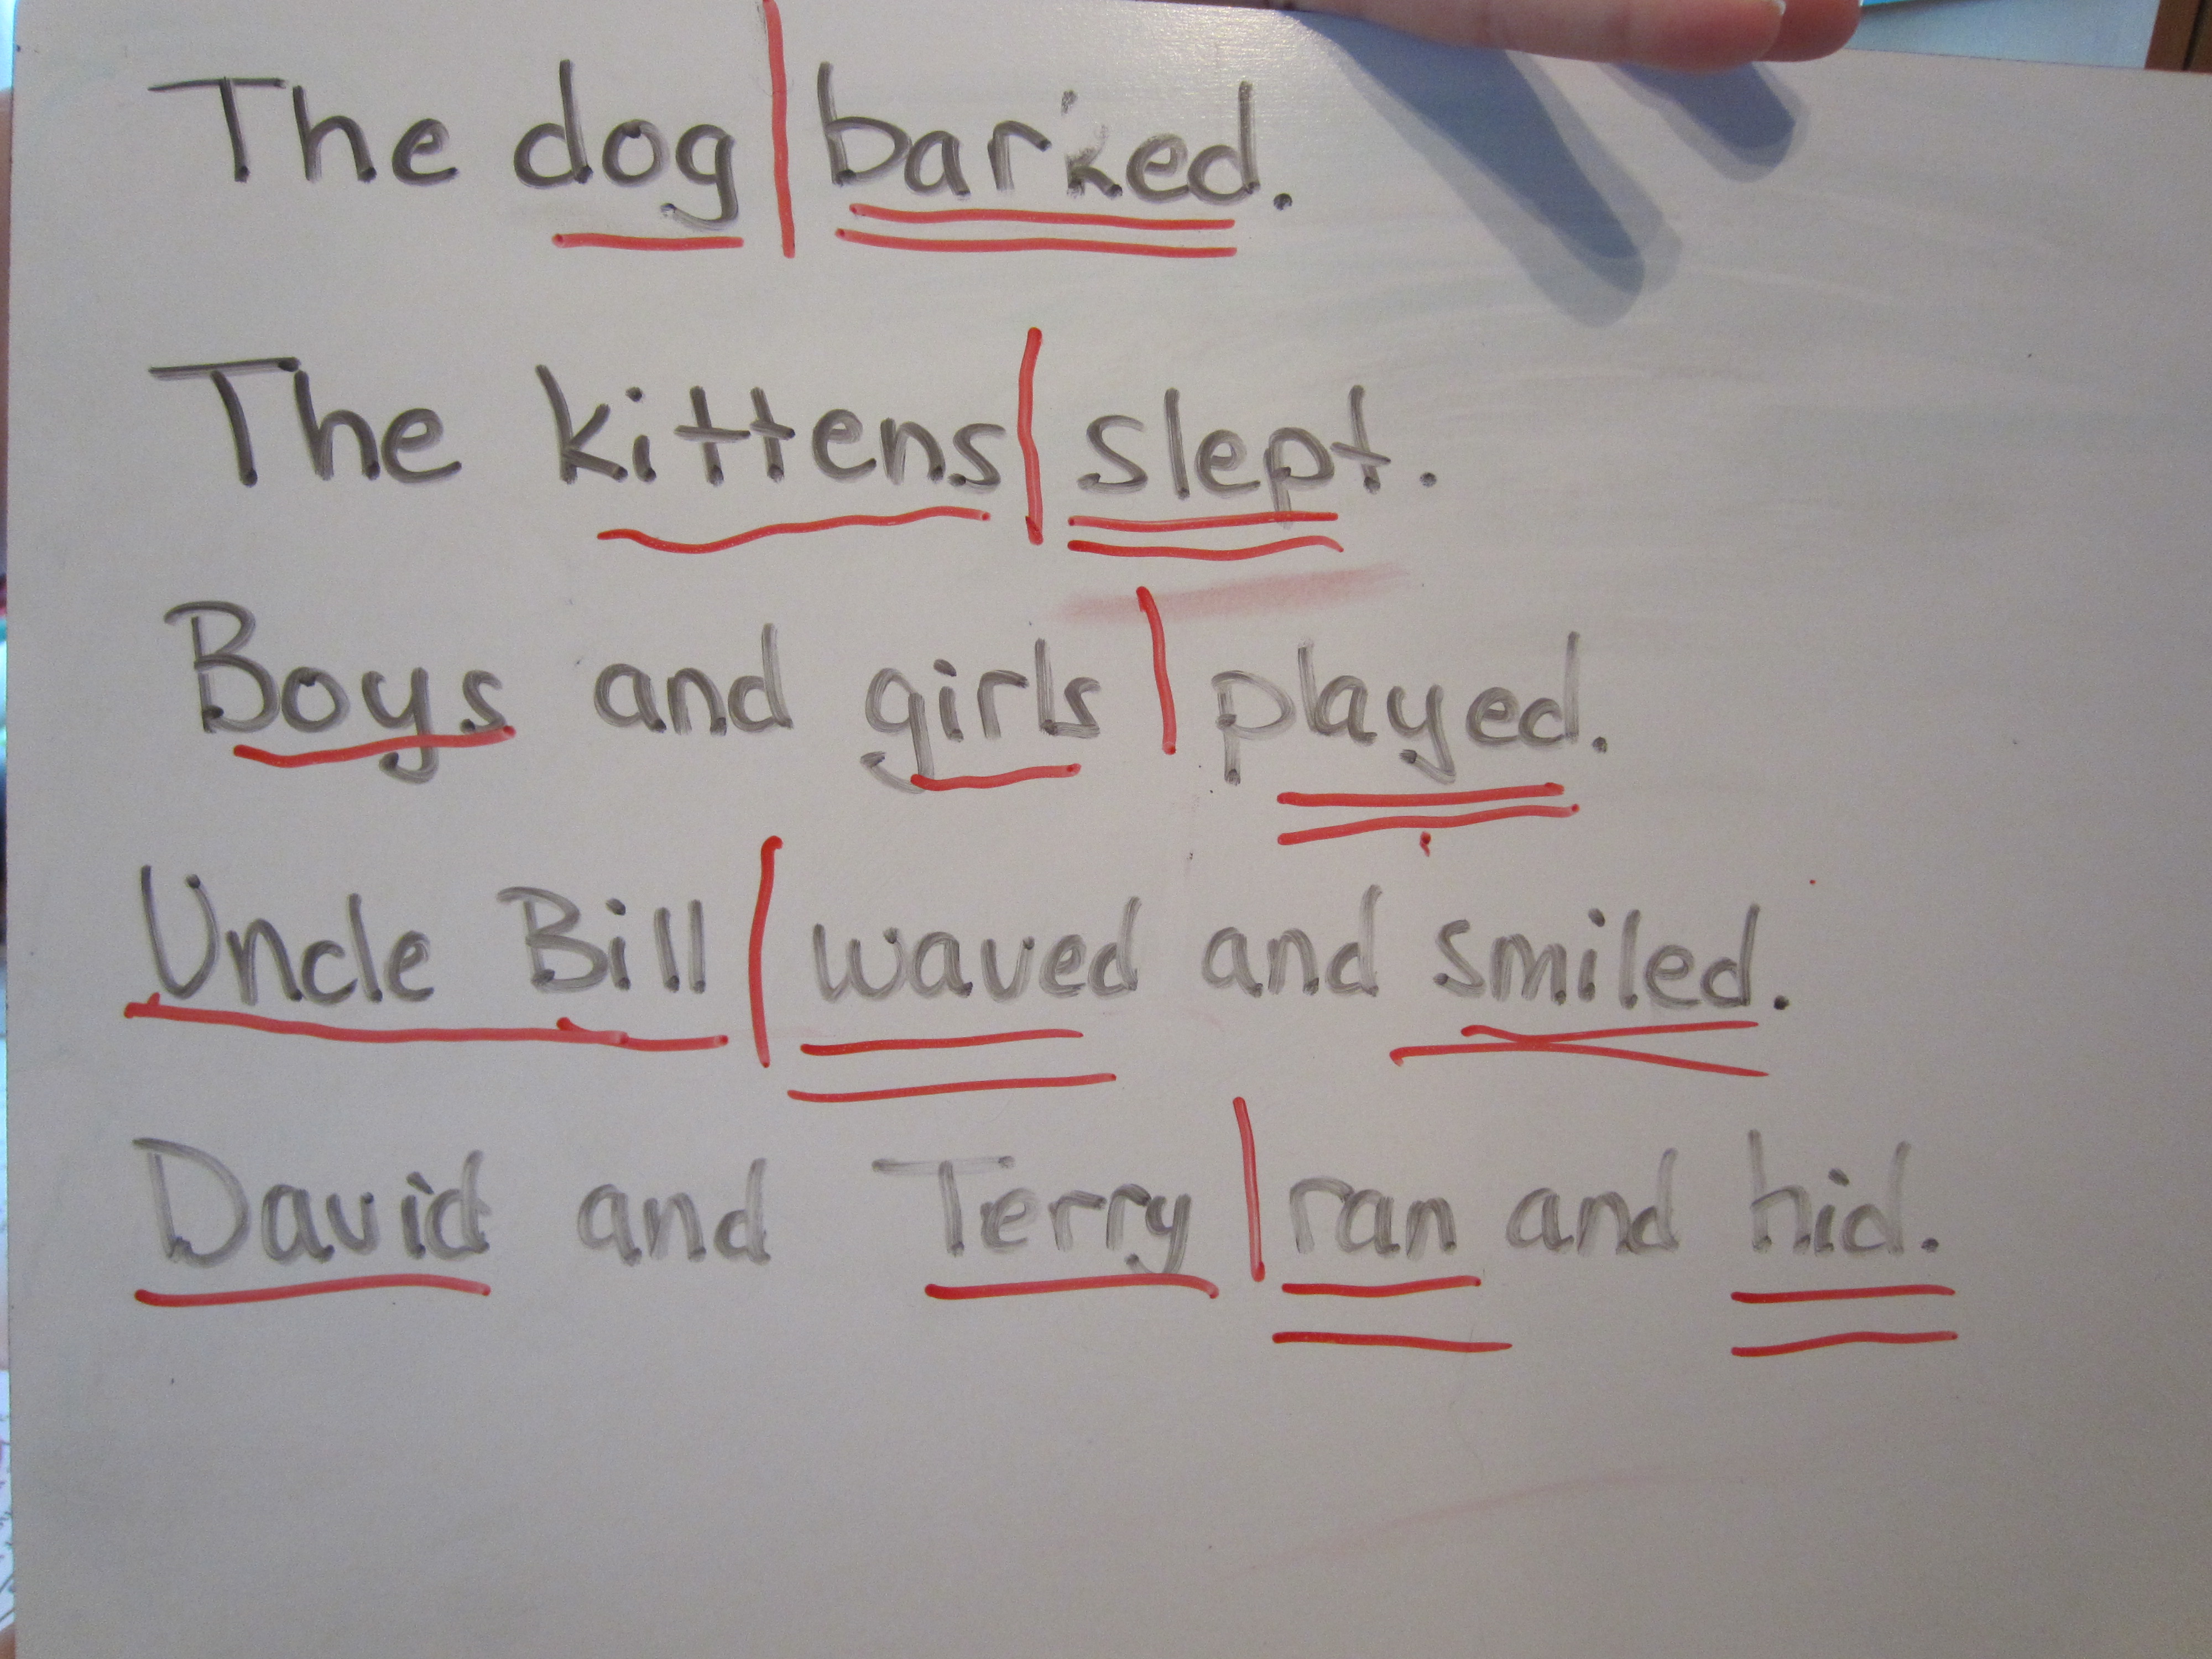 The dog barked.
The kittens slept.
Boys and girls played.
Uncle Bill waved and smiled.
David and Terry ran and hid.